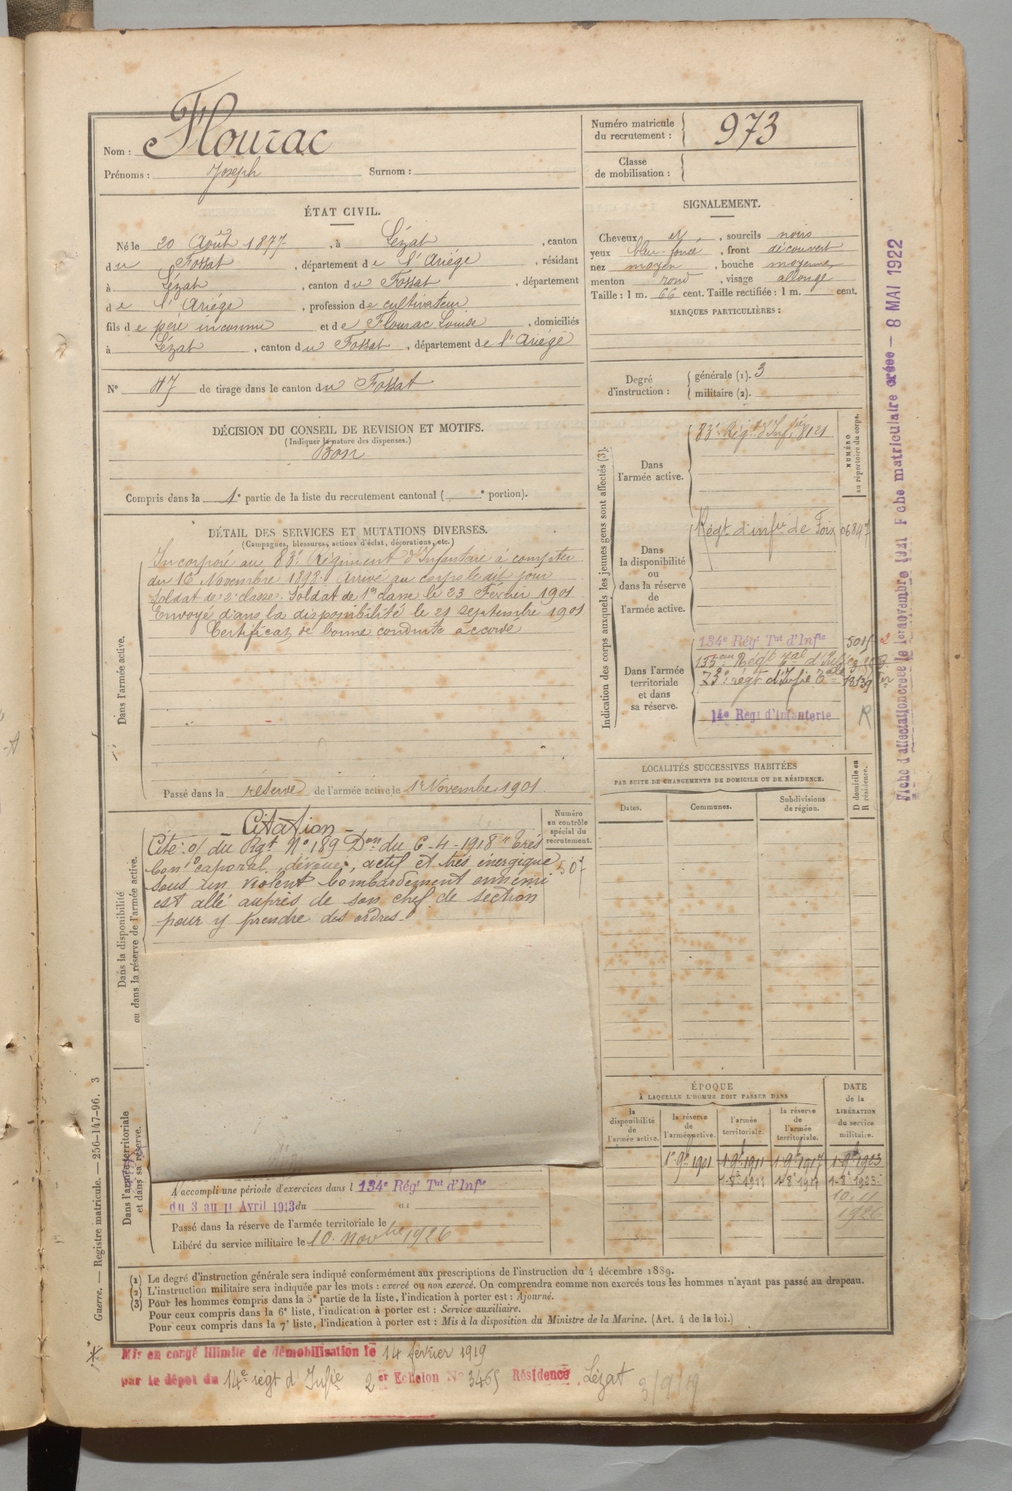 Nom : Flourac
Prénoms : Joseph Surnom :
Numéro matricule du recrutement : 973
Classe de mobilisation :
ÉTAT CIVIL.
Né le 20 Août 1877, à Lézat, canton
du Fossat, département de l'Ariège, résidant
à Lézat, canton du Fossat, département
de l'Ariège, profession de cultivateur
fils de père inconnu et de Flourac Louise, domiciliés
à Lézat, canton du Fossat, département de l'Ariège
N° 47 de tirage dans le canton du Fossat
SIGNALEMENT.
Cheveux et, sourcils noirs
yeux bleu foncé, front découvert
nez moyen, bouche moyenne
menton rond, visage allongé
Taille : 1 m. 66 cent. Taille rectifiée : 1 m. cent.
MARQUES PARTICULIÈRES :
Degré d'instruction : générale (1). 3
militaire (2).
DÉCISION DU CONSEIL DE REVISION ET MOTIFS.
(Indiquer la nature des dispenses.)
Bon
Compris dans la 1e partie de la liste du recrutement cantonal ( e portion).
DÉTAIL DES SERVICES ET MUTATIONS DIVERSES.
(Campagnes, blessures, actions d'éclat, décorations, etc.)
Dans l'armée active.
Incorporé au 83e Régiment d'Infanterie à compter
du 16 Novembre 1898. Arrivé au corps le dit jour
Soldat de 2e classe. Soldat de 1re classe le 23 Février 1901
Envoyé dans la disponibilité le 21 septembre 1901
Certificat de bonne conduite accordé
Passé dans la réserve de l'armée active le 1er Novembre 1901
Numéro au contrôle spécial du recrutement.
507
Dans la disponibilité ou dans la réserve de l'armée active.
- Citation -
Cité : o/ du Rgt N° 189 Don du 6-4-1918 " Très
bon caporal, dévoué, actif et très énergique
sous un violent bombardement ennemi
est allé auprès de son chef de section
pour y prendre des ordres.
Dans l'armée territoriale et dans sa réserve.
A accompli une période d'exercices dans l 134e Régt Tal d'Infie
du 3 au 11 Avril 1913 du au
Passé dans la réserve de l'armée territoriale le
Libéré du service militaire le 10 Novbre 1926
Indication des corps auxquels les jeunes gens sont affectés (3).
NUMÉRO au répertoire du corps.
Dans l'armée active.
83e Régt d'Infie 8121
Dans la disponibilité ou dans la réserve de l'armée active.
Régt d'infie de Foix
Dans l'armée territoriale et dans sa réserve.
134e Régt Tal d'Infie
135eme Régt Tal d'Infie
73e régt d'Infie Tale
14e Régt d'infanterie R
LOCALITÉS SUCCESSIVES HABITÉES
PAR SUITE DE CHANGEMENTS DE DOMICILE OU DE RÉSIDENCE.
Dates. Communes. Subdivisions de région. D domicile ou R résidence.
ÉPOQUE
À LAQUELLE L'HOMME DOIT PASSER DANS
DATE de la LIBÉRATION du service militaire.
la disponibilité de l'armée active. la réserve de l'armée active. l'armée territoriale. la réserve de l'armée territoriale.
1er 9bre 1901 1-9bre 1911 1-9bre 1917 1-9bre 1923
10.11
1926
(1) Le degré d'instruction générale sera indiqué conformément aux prescriptions de l'instruction du 4 décembre 1889.
(2) L'instruction militaire sera indiquée par les mots : exercé ou non exercé. On comprendra comme non exercés tous les hommes n'ayant pas passé au drapeau.
(3) Pour les hommes compris dans la 5e partie de la liste, l'indication à porter est : Ajourné.
Pour ceux compris dans la 6e liste, l'indication à porter est : Service auxiliaire.
Pour ceux compris dans la 7e liste, l'indication à porter est : Mis à la disposition du Ministre de la Marine. (Art. 4 de la loi.)
Mis en congé illimité de démobilisation le 14 février 1919
par le dépôt du 14e régt d'Infie 2er Echelon N° 3465 Résidence Lézat
3/9/19
Guerre. — Registre matricule. — 256-147-96. 3
Fiche d'affectation créée le 1er novembre 1921 Fiche matriculaire créée - 8 MAI 1922